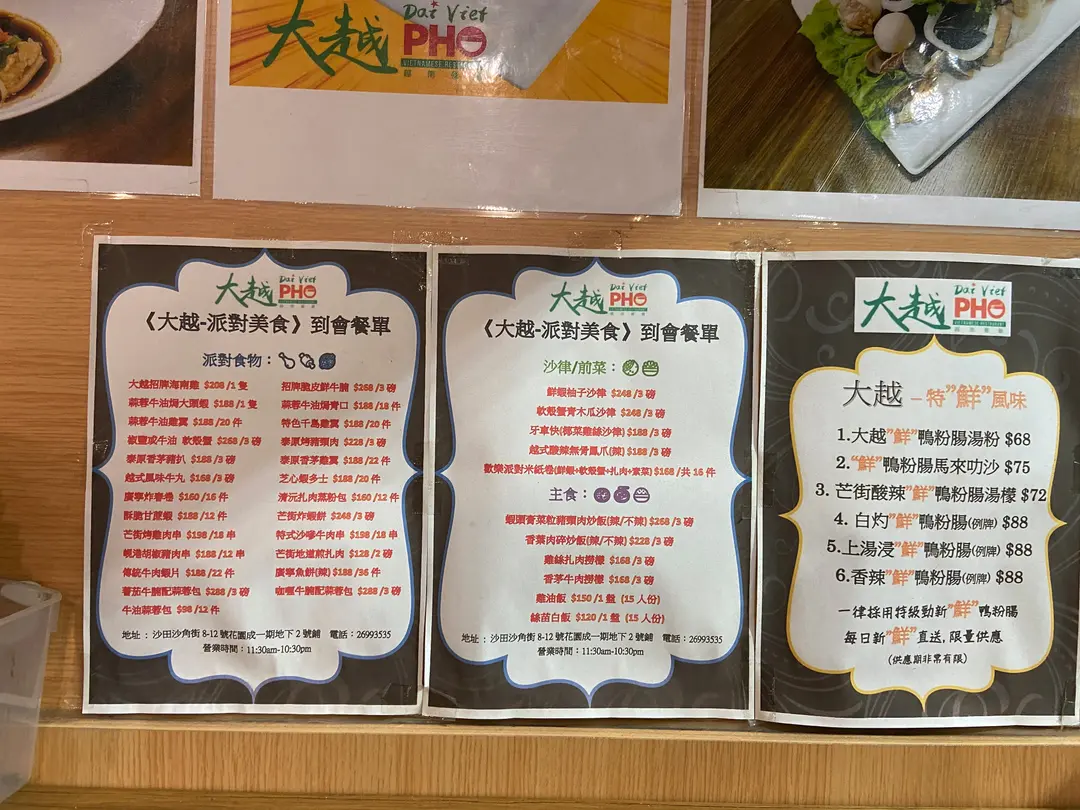 大越
Dai Viet
PHO
VIETNAMESE RESTAURANT
大越
Dai Viet
PHO
《大越-派對美食》到會餐單
派對食物：
大越招牌海南雞 $208 /1 隻
蒜蓉牛油焗大頭蝦 $188 /1 隻
蒜蓉牛油雞翼 $188 /20 件
椒鹽或牛油 軟殼蟹 $268 /3 磅
泰原香茅豬扒 $188 /3 磅
越式風味牛丸 $168 /3 磅
廣寧炸春卷 $160 /16 件
酥脆甘蔗蝦 $188 /12 件
芒街烤雞肉串 $198 /18 串
峴港胡椒豬肉串 $188 /12 串
傳統牛肉蝦片 $188 /22 件
蕃茄牛腩配蒜蓉包 $288 /3 磅
牛油蒜蓉包 $98 /12 件
招牌脆皮鮮牛腩 $268 /3 磅
蒜蓉牛油焗青口 $188 /18 件
特色千島雞翼 $188 /20 件
泰原烤豬頸肉 $228 /3 磅
泰原香茅雞翼 $188 /22 件
芝心蝦多士 $188 /20 件
清沅扎肉蒸粉包 $160 /12 件
芒街炸蝦餅 $248 /3 磅
特式沙嗲牛肉串 $198 /18 串
芒街地道煎扎肉 $128 /2 磅
廣寧魚餅(辣) $188 /36 件
咖喱牛腩配蒜蓉包 $288 /3 磅
地址：沙田沙角街 8-12 號花園成一期地下 2 號鋪 電話：26993535
營業時間：11:30am-10:30pm
大越
Dai Viet
PHO
《大越-派對美食》到會餐單
沙律/前菜：
鮮蝦柚子沙律 $248 /3 磅
軟殼蟹青木瓜沙律 $248 /3 磅
牙車快(椰菜雞絲沙律) $188 /3 磅
越式酸辣無骨鳳爪(辣) $188 /3 磅
歡樂派對米紙卷(鮮蝦+軟殼蟹+扎肉+素菜) $168 /共 16 件
主食：
蝦頭膏菜粒豬頸肉炒飯(辣/不辣) $268 /3 磅
香葉肉碎炒飯(辣/不辣) $228 /3 磅
雞絲扎肉撈檬 $168 /3 磅
香茅牛肉撈檬 $168 /3 磅
雞油飯 $150 /1 盤 (15 人份)
絲苗白飯 $120 /1 盤 (15 人份)
地址：沙田沙角街 8-12 號花園成一期地下 2 號鋪 電話：26993535
營業時間：11:30am-10:30pm
大越
Dai Viet
PHO
VIETNAMESE RESTAURANT
大越 – 特”鮮”風味
1.大越”鮮”鴨粉腸湯粉 $68
2.”鮮”鴨粉腸馬來叻沙 $75
3. 芒街酸辣”鮮”鴨粉腸湯檬 $72
4. 白灼”鮮”鴨粉腸(例牌) $88
5.上湯浸”鮮”鴨粉腸(例牌) $88
6.香辣”鮮”鴨粉腸(例牌) $88
一律採用特級勁新”鮮”鴨粉腸
每日新”鮮”直送,限量供應
(供應期非常有限)